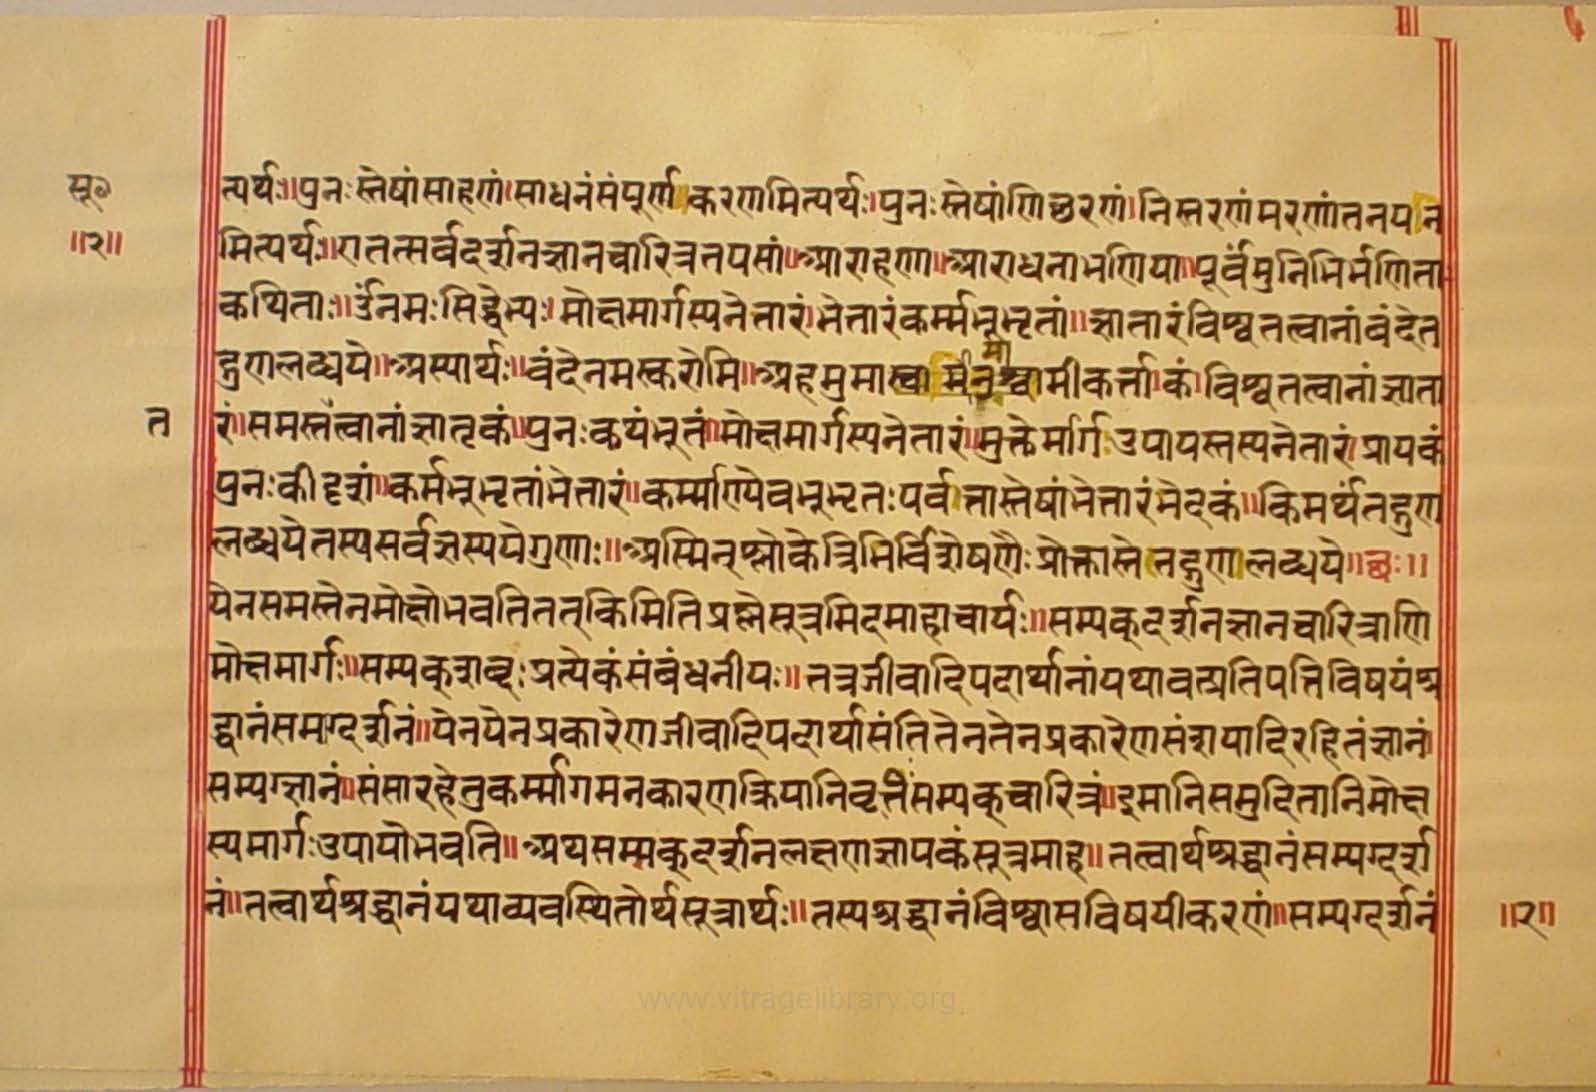 सू०
॥२॥
त्यर्थः॥पुनःस्तेषांसाहणं।साधनंसंपूर्ण।करणमित्यर्थः।पुनःस्तेषांणिच्छरणं।निस्तरणंमरणांतनपनि
मित्यर्थः॥एतत्सर्वदर्शनज्ञानचारित्रतपसां॥आराहणा॥आराधनाभणिया॥पूर्वंमुनिभिर्भणिता
कथिताः॥ॐनमःसिद्धेभ्यः॥मोक्षमार्गस्यनेतारं।भेत्तारंकर्म्मभूभृतां॥ज्ञातारंविश्वतत्वानांवंदेत
द्गुणलब्धये॥अस्यार्थः॥वंदेनमस्करोमि॥अहमुमास्वामीकर्त्ता।कं।विश्वतत्वानांज्ञाता
त
रं॥समस्तत्वानांज्ञातृकं॥पुनःकथंभूतं॥मोक्षमार्गस्यनेतारं॥मुक्तेर्मार्गःउपायस्तस्यनेतारं।प्रापकं
पुनःकीदृशं॥कर्मभूभृतांभेत्तारं॥कर्म्माण्येवभूभृतःपर्वतास्तेषांभेत्तारंभेदकं॥किमर्थंतद्गुण
लब्धयेतस्यसर्वज्ञस्ययेगुणाः॥अस्मिन्श्लोकेत्रिभिर्विशेषणैःप्रोक्तास्तेतद्गुणलब्धये॥छः॥
येनसमस्तेनमोक्षोभवतितत्किमितिप्रश्नेसूत्रमिदमाहाचार्यः॥सम्यक्दर्शनज्ञानचारित्राणि
मोक्षमार्गः॥सम्यक्शब्दःप्रत्येकंसंबंधनीयः॥तत्रजीवादिपदार्थानांयथावत्प्रतिपत्तिविषयंश्र
द्धानंसमग्दर्शनं॥येनयेनप्रकारेणजीवादिपदार्थासंतितेनतेनप्रकारेणसंशयादिरहितंज्ञानं
सम्यग्ज्ञानं॥संसारहेतुकर्म्मागमनकारणक्रियानिवृत्तिंसम्यक्चारित्रं॥इमानिसमुदितानिमोक्ष
स्यमार्गःउपायोभवति॥अथसम्यक्दर्शनलक्षणज्ञापकंसूत्रमाह॥तत्वार्थश्रद्धानंसम्यग्दर्श
नं॥तत्वार्थश्रद्धानंयथाव्यवस्थितोर्थसूत्रार्थः॥तस्यश्रद्धानंविश्वासविषयीकरणं॥सम्यग्दर्शनं
॥२॥
www.vitragelibrary.org